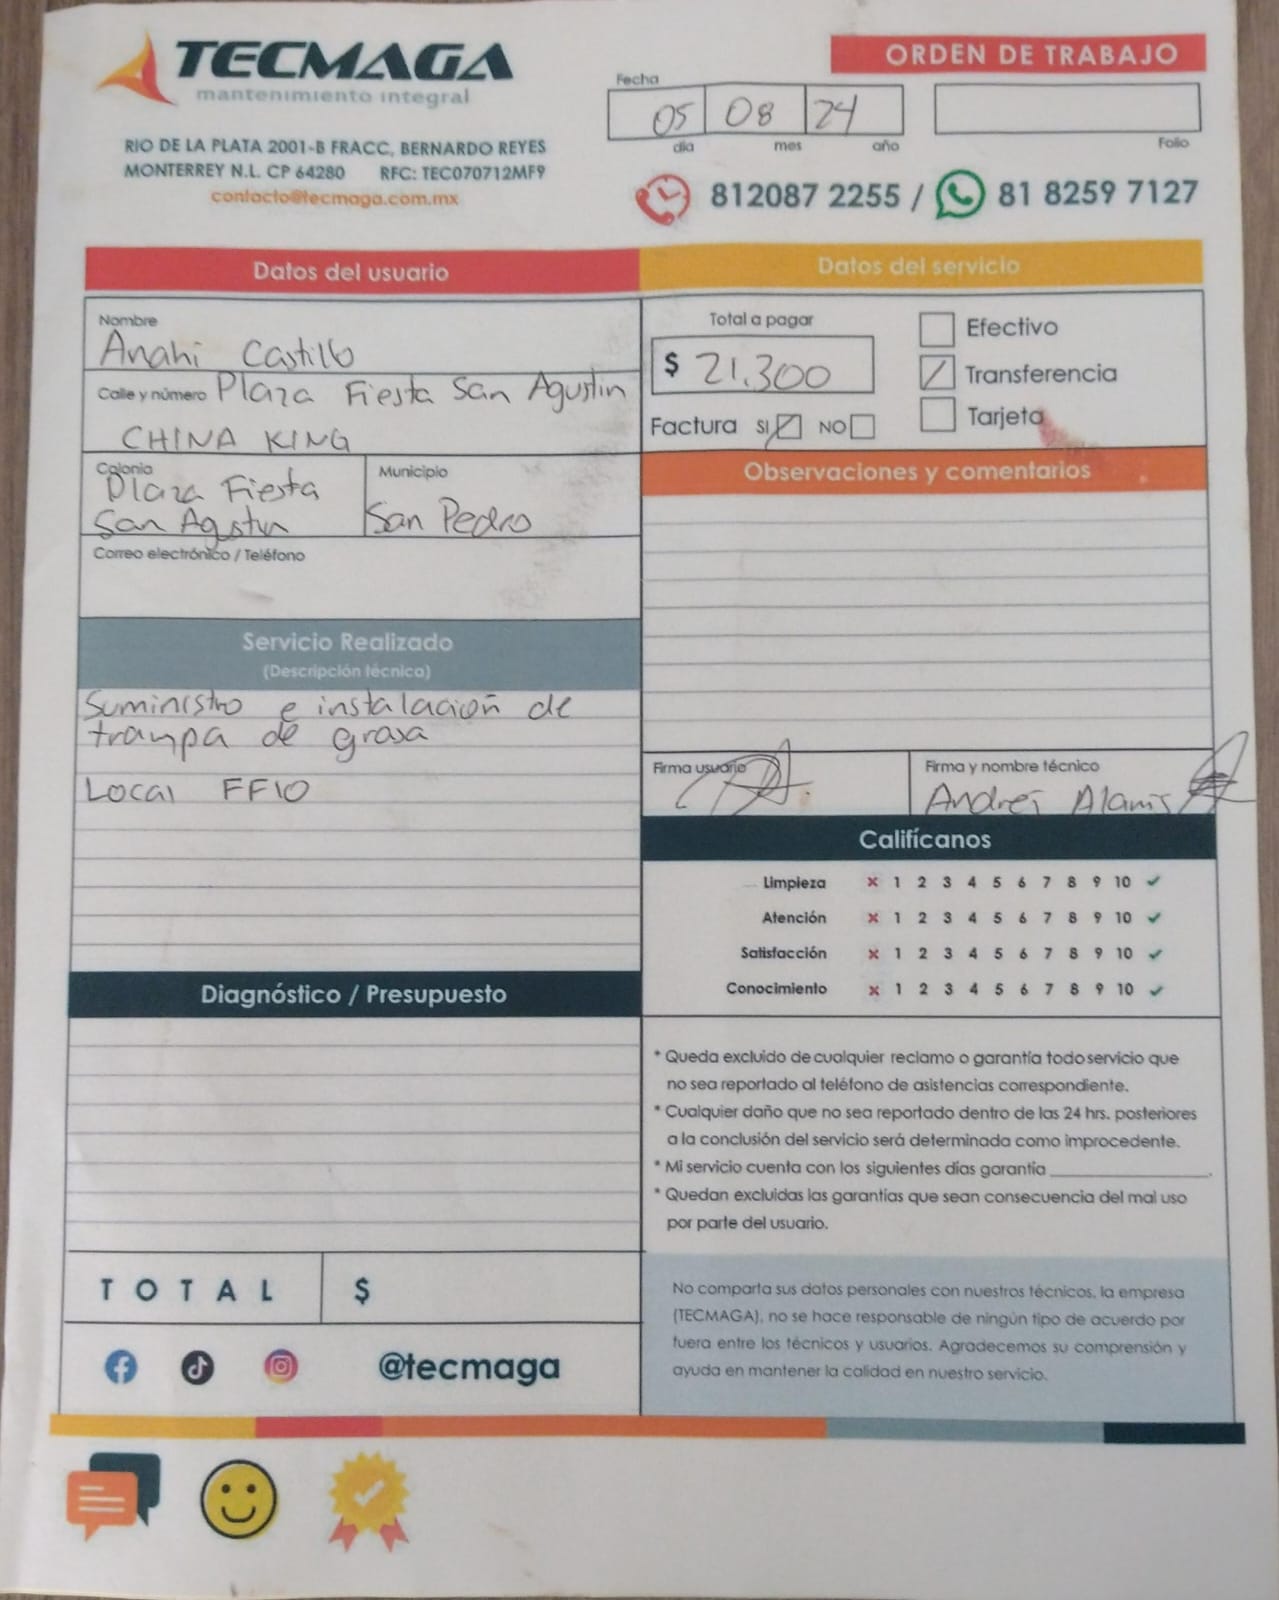 TECMAGA
mantenimiento integral
RIO DE LA PLATA 2001-B FRACC, BERNARDO REYES
MONTERREY N.L. CP 64280 RFC: TEC070712MF9
contacto@tecmaga.com.mx
ORDEN DE TRABAJO
Fecha
05 08 24
dia mes año
Folio
812087 2255 / 81 8259 7127
Datos del usuario
Nombre
Anahi Castillo
Calle y número Plaza Fiesta San Agustin
CHINA KING
Colonia
Plaza Fiesta
San Agustin
Municipio
San Pedro
Correo electrónico / Teléfono
Servicio Realizado
(Descripción técnica)
Suministro e instalación de
trampa de grasa
Local FF10
Diagnóstico / Presupuesto
TOTAL $
@tecmaga
Datos del servicio
Total a pagar
$ 21,300
Efectivo
Transferencia
Tarjeta
Factura SI NO
Observaciones y comentarios
Firma usuario
Firma y nombre técnico
Andrei Alanis
Califícanos
Limpieza x 1 2 3 4 5 6 7 8 9 10 ✓
Atención x 1 2 3 4 5 6 7 8 9 10 ✓
Satisfacción x 1 2 3 4 5 6 7 8 9 10 ✓
Conocimiento x 1 2 3 4 5 6 7 8 9 10 ✓
* Queda excluido de cualquier reclamo o garantía todo servicio que
no sea reportado al teléfono de asistencias correspondiente.
* Cualquier daño que no sea reportado dentro de las 24 hrs. posteriores
a la conclusión del servicio será determinada como improcedente.
* Mi servicio cuenta con los siguientes días garantía ____________.
* Quedan excluidas las garantías que sean consecuencia del mal uso
por parte del usuario.
No comparta sus datos personales con nuestros técnicos, la empresa
(TECMAGA), no se hace responsable de ningún tipo de acuerdo por
fuera entre los técnicos y usuarios. Agradecemos su comprensión y
ayuda en mantener la calidad en nuestro servicio.